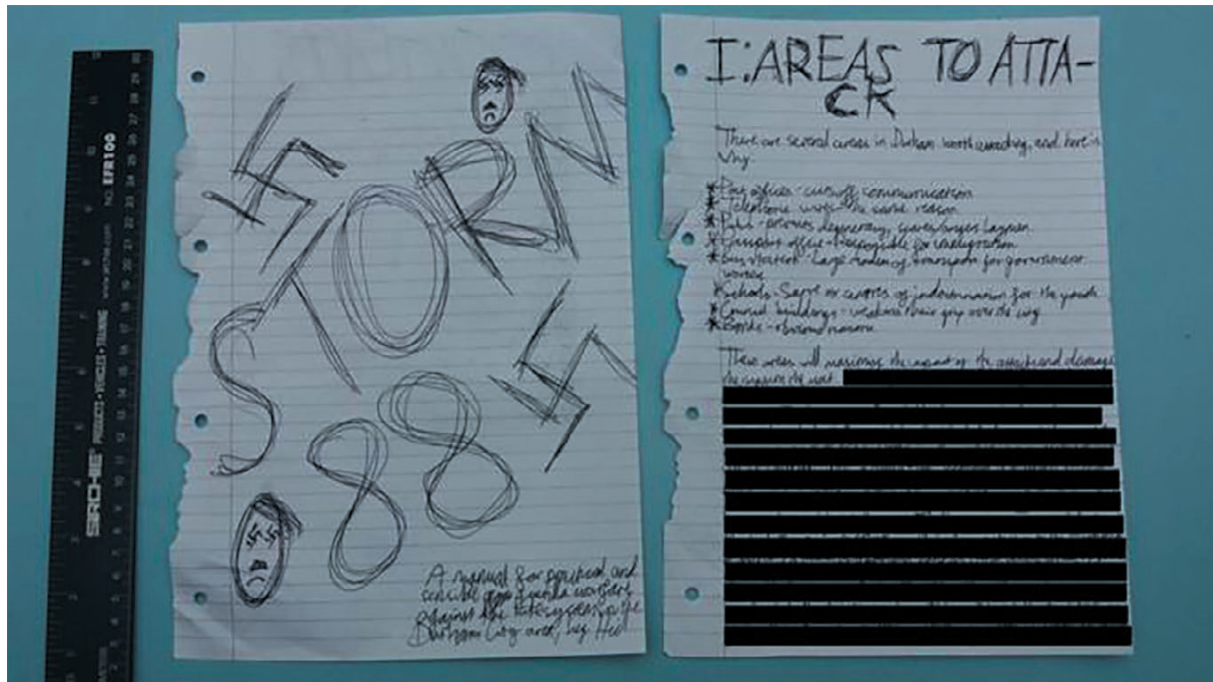 SIRCHIE PRODUCTS • VEHICLES • TRAINING www.sirchie.com NO. EFR100
STORM
88
A manual for practical and
sensible guerrilla warfare
against the system in the
Durham City area, Sieg Heil
I: AREAS TO ATTA-
CK
There are several areas in Durham worth attacking, and here is
why:
* Post offices - cuts off communication
* Telephone - the same reason
* Pubs - degeneracy,
* office - Responsible for immigration
* Bus station - Large of transport for government
* Schools - Serve as centres of indoctrination for the youth
* Council buildings - weakens their grip over the city
* - obvious reasons
These areas will maximise the impact of the attack and damage
the the most.